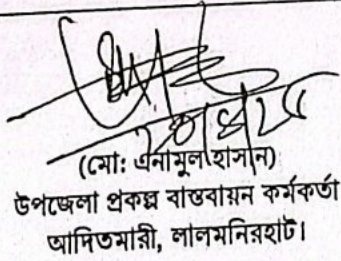 (মো: এনামুল হাসান)
উপজেলা প্রকল্প বাস্তবায়ন কর্মকর্তা
আদিতমারী, লালমনিরহাট।